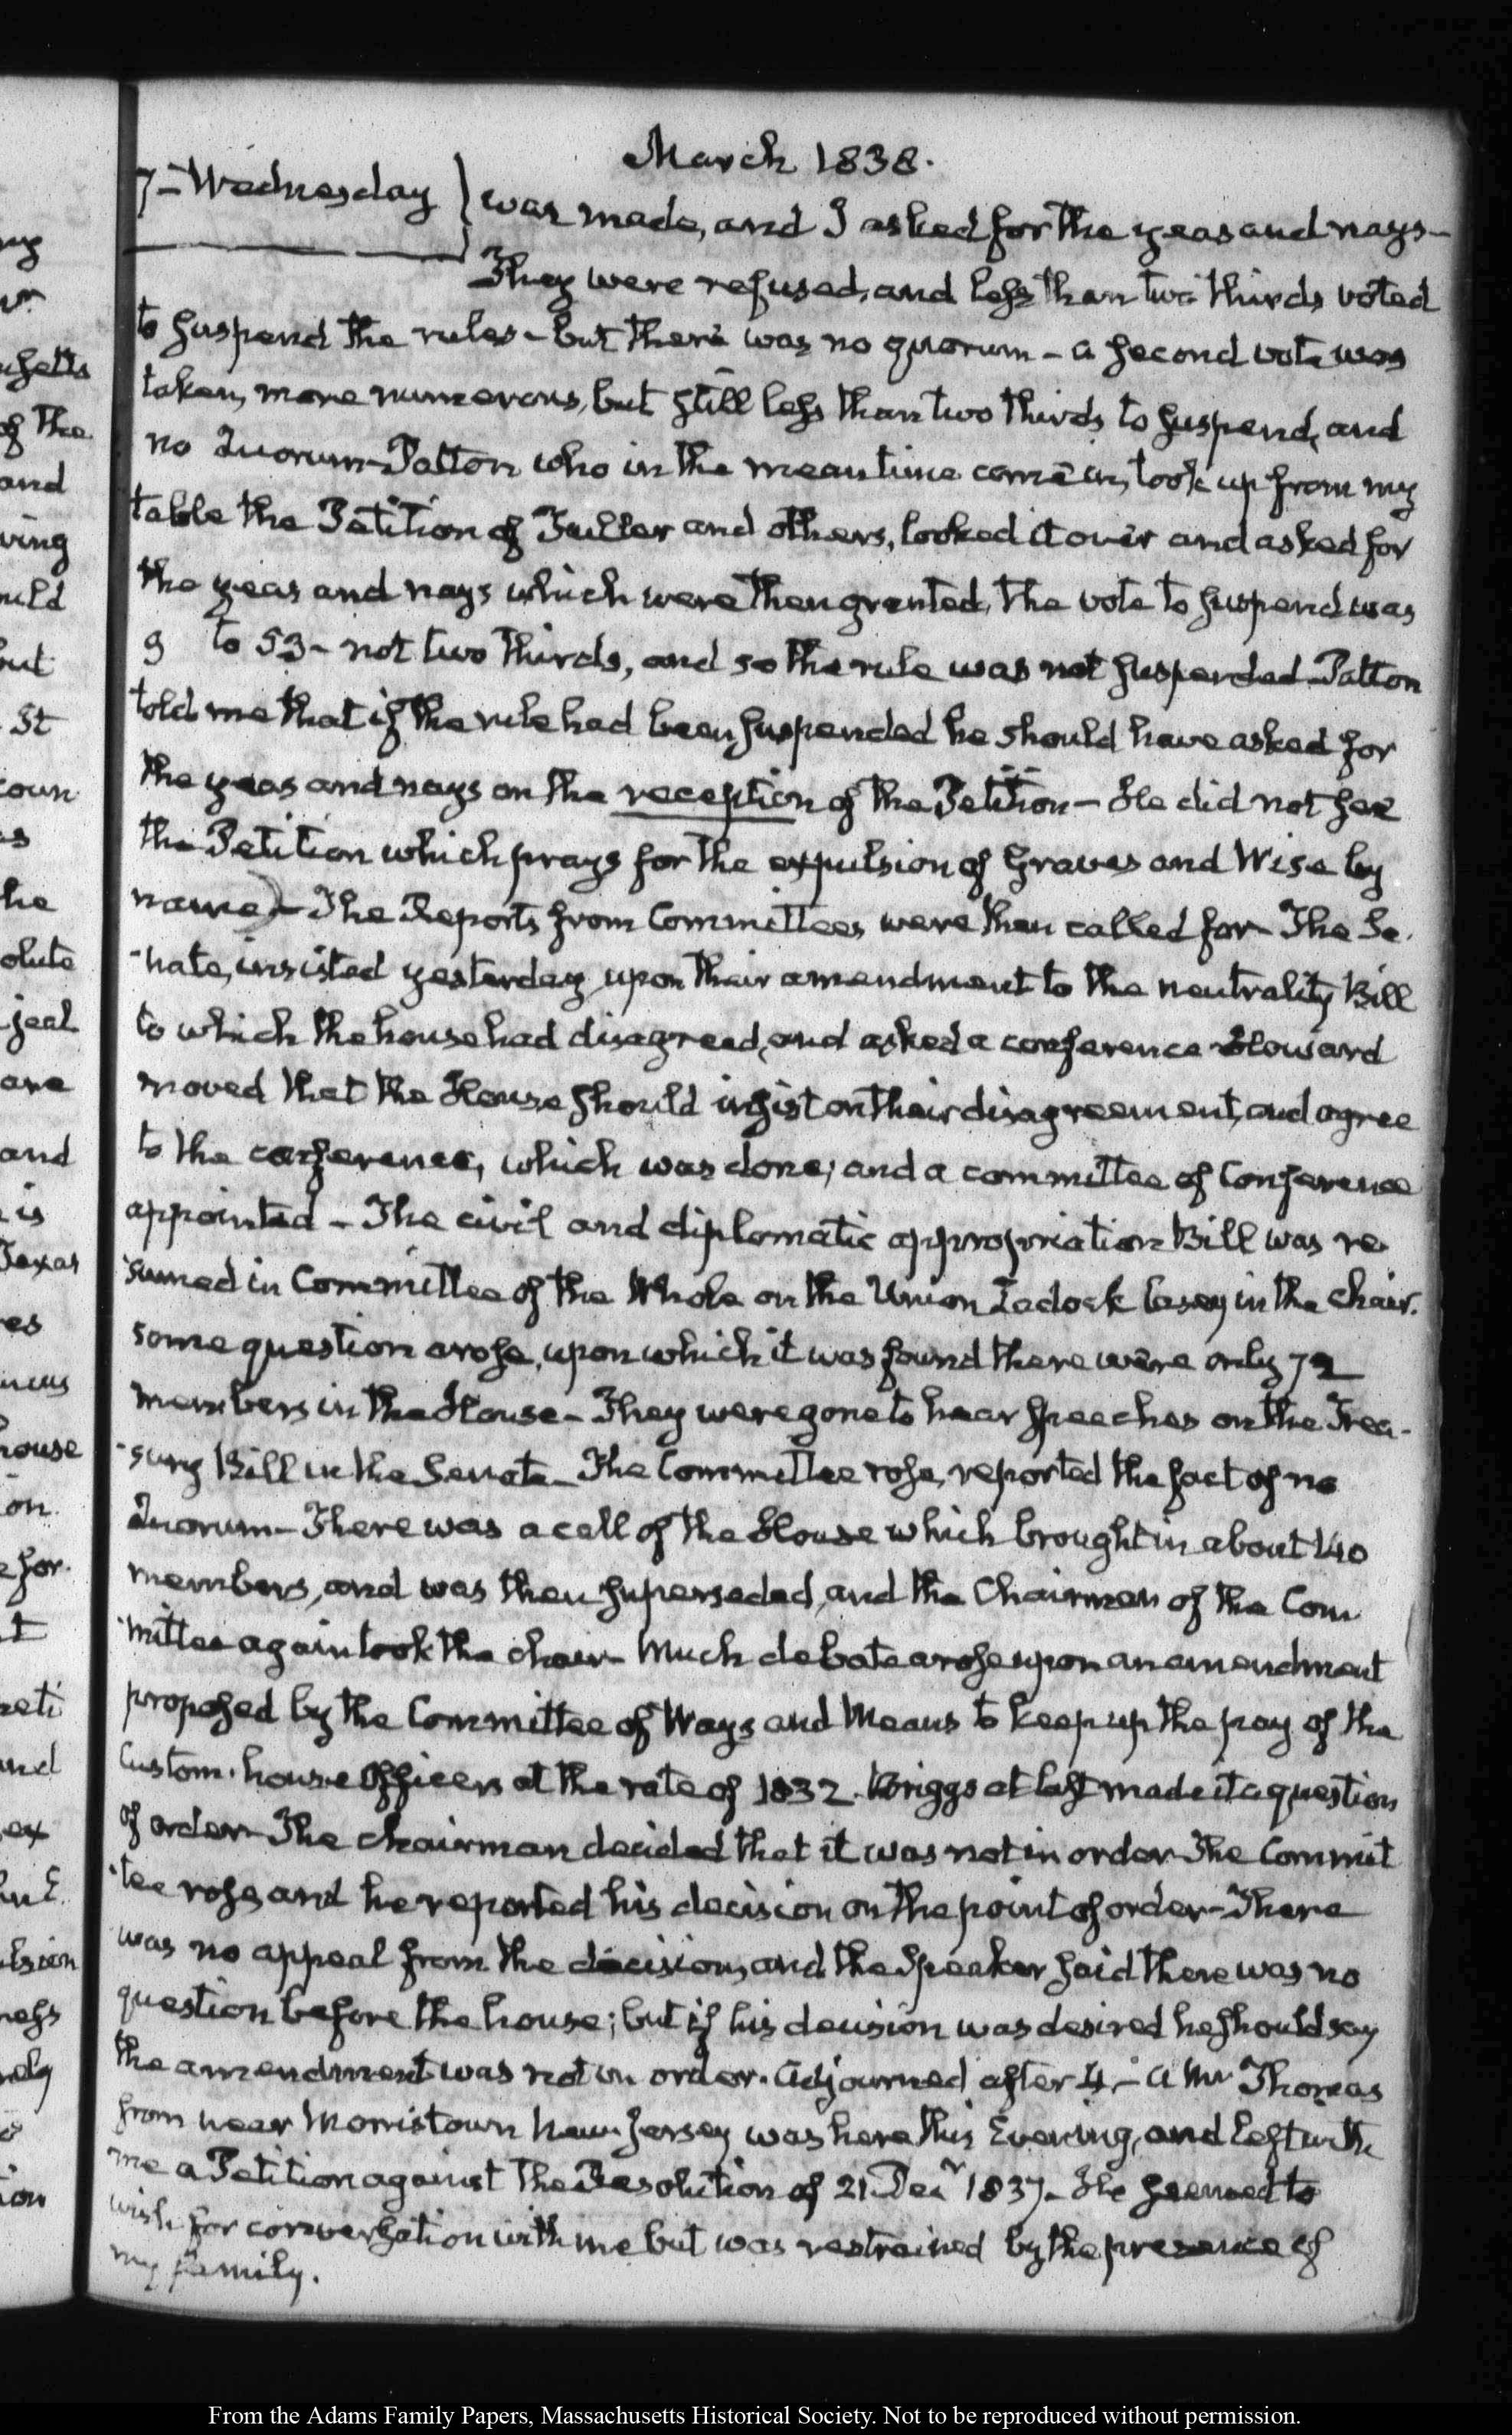 March 1838.
7– Wednesday } was made, and I asked for the yeas and nays–
They were refused, and less than two thirds voted
to suspend the rules – but there was no quorum – a second vote was
taken, more numerous, but still less than two thirds to suspend, and
no Quorum – Patton who in the mean time came in, took up from my
table the Petition of Fuller and others, looked it over and asked for
the yeas and nays which were then granted, the vote to suspend was
9 to 53 – not two thirds, and so the rule was not suspended – Patton
told me that if the rule had been suspended he should have asked for
the yeas and nays on the reception of the Petition – He did not see
the Petition which prays for the expulsion of Graves and Wise by
name) – The Reports from Committees were then called for – The Se-
-nate, insisted yesterday upon their amendment to the neutrality Bill
to which the house had disagreed, and asked a conference Howard
moved that the House should insist on their disagreement, and agree
to the conference, which was done; and a committee of Conference
appointed – The civil and diplomatic appropriation Bill was re
-sumed in Committee of the Whole on the Union Zadock Casey in the Chair.
some question arose, upon which it was found there were only 72
members in the House – They were gone to hear speeches on the Trea-
-sury Bill in the Senate – The Committee rose, reported the fact of no
Quorum – There was a call of the House which brought in about 140
members, and was then superseded, and the Chairman of the Com
-mittee again took the chair – Much debate arose upon an amendment
proposed by the Committee of Ways and Means to keep up the pay of the
Custom-house Officers at the rate of 1832. Briggs at last made it a question
of order – The Chairman decided that it was not in order – The Commit
-tee rose, and he reported his decision on the point of order – There
was no appeal from the decision, and the Speaker said there was no
question before the house; but if his decision was desired he should say
the amendment was not in order. Adjourned after 4 – A Mr Thomas
from near Morristown New-Jersey was here this Evening, and left with
me a Petition against the Resolution of 21. Decr 1837 – He seemed to
wish for conversation with me but was restrained by the presence of
my family.
From the Adams Family Papers, Massachusetts Historical Society. Not to be reproduced without permission.